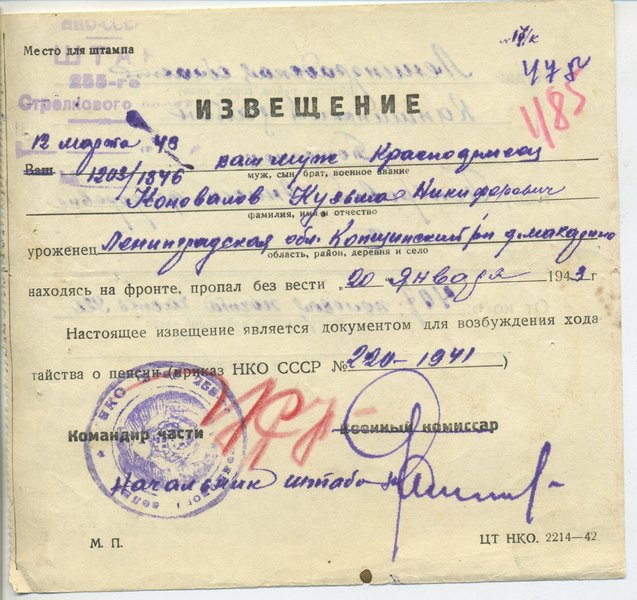 НКО-СССР
Место для штампа
ШТАБ
255-го
Стрелкового
478
485
ИЗВЕЩЕНИЕ
12 марта 43
Ваш ваш муж Красноармеец
1203/1846
муж, сын, брат, военное звание
Коновалов Кузьма Никифорович
фамилия, имя и отчество
уроженец Ленинградская обл.
область, район, деревня и село
находясь на фронте, пропал без вести „20" Января 1943 г
Настоящее извещение является документом для возбуждения хода
тайства о пенсии (приказ НКО СССР № 220-1941)
Командир части Военный комиссар
Начальник штаба
М. П. ЦТ НКО. 2214—42